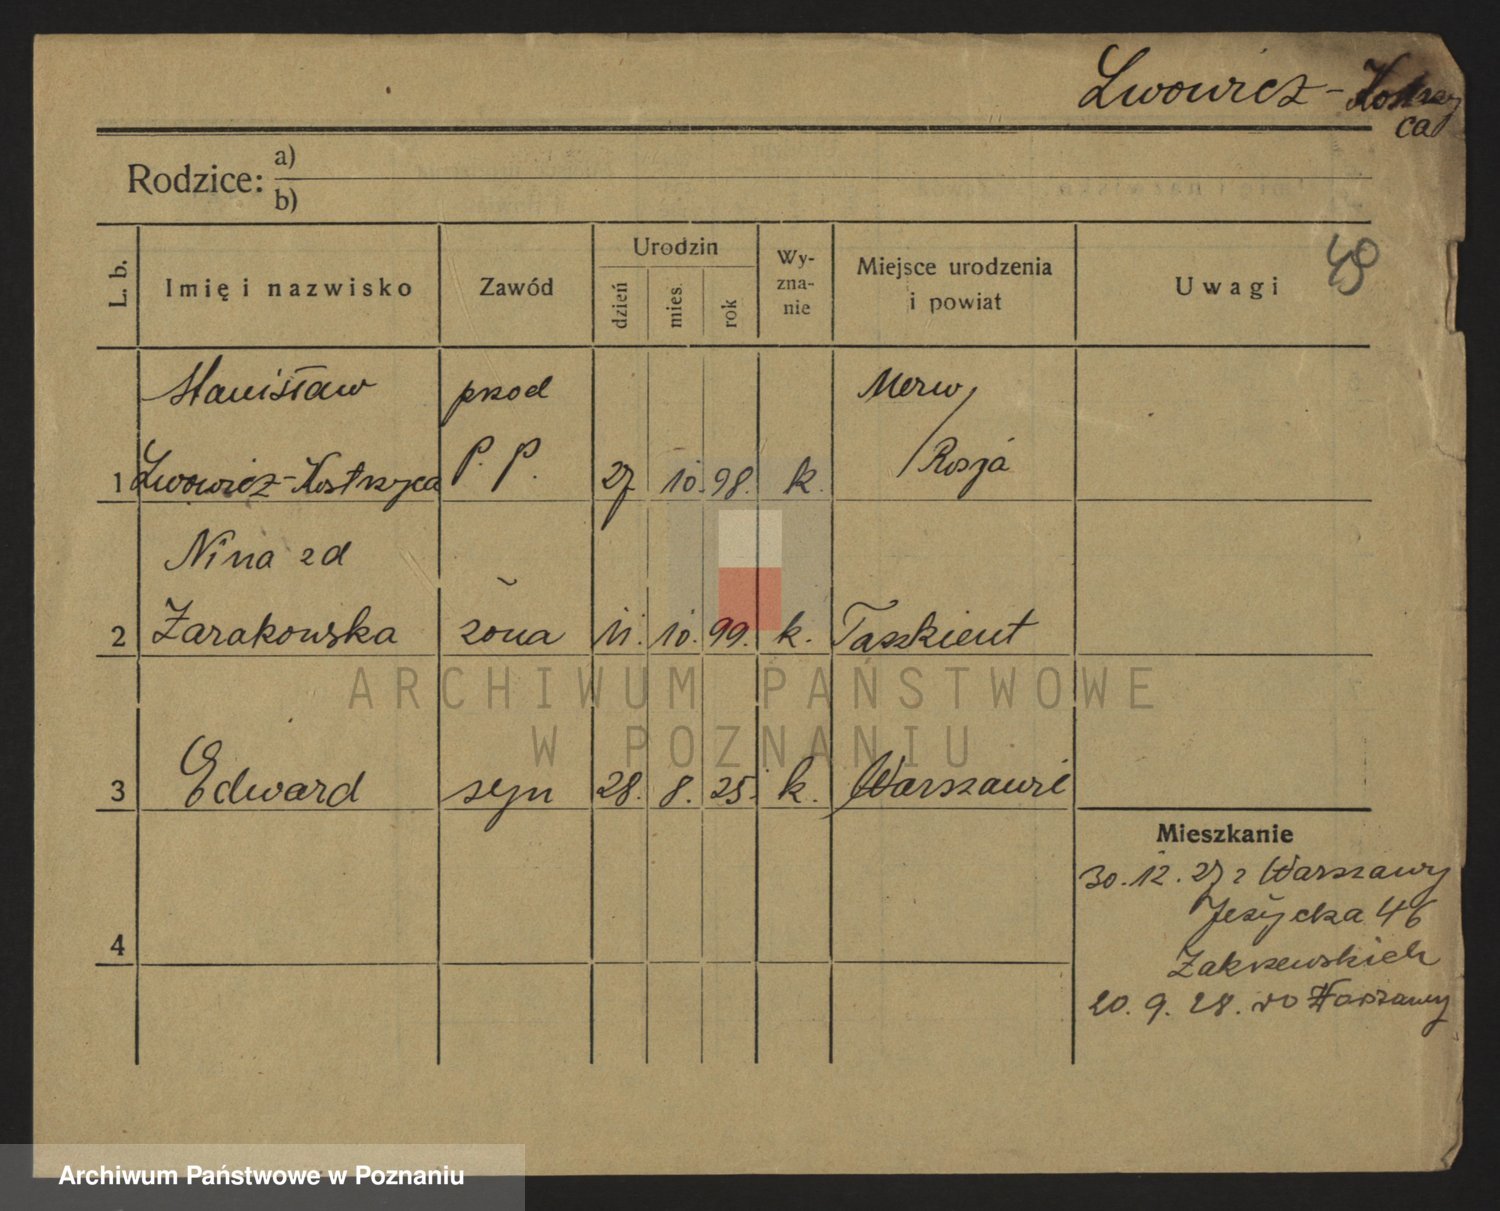 Lwowicz-Kostrzy
ca
Rodzice: a)
b)
L. b.
Imię i nazwisko
Zawód
Urodzin
dzień
mies.
rok
Wy-
zna-
nie
Miejsce urodzenia
i powiat
Uwagi
Stanisław
Merw
P. P.
Rosja
1 Lwowicz-Kostrzyca 27 10. 98. k.
Nina zd
2 Żarakowska żona 11. 10. 99. k. Taszkient
3 Edward syn 28. 8. 25. k. Warszawie
Mieszkanie
30.12.27 z Warszawy
Jeżycka 46
Zakrzewskich
20. 9. 28. do Warszawy
4
ARCHIWUM PAŃSTWOWE
W POZNANIU
Archiwum Państwowe w Poznaniu